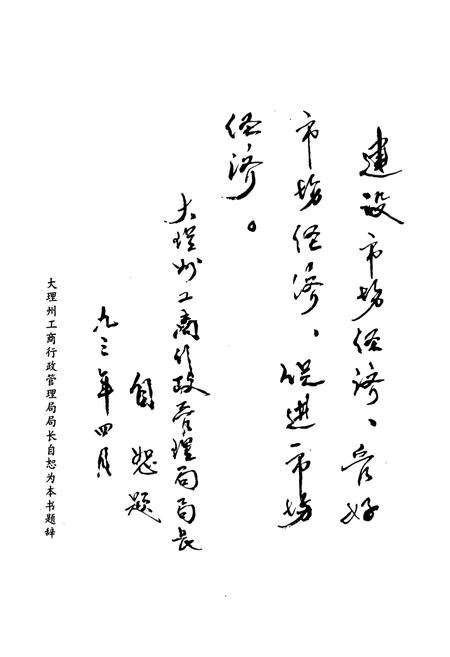 建设市场经济、管好
市场经济、促进市场
经济。
大理州工商行政管理局局长
自恕题
九三年四月
大理州工商行政管理局局长自恕为本书题辞